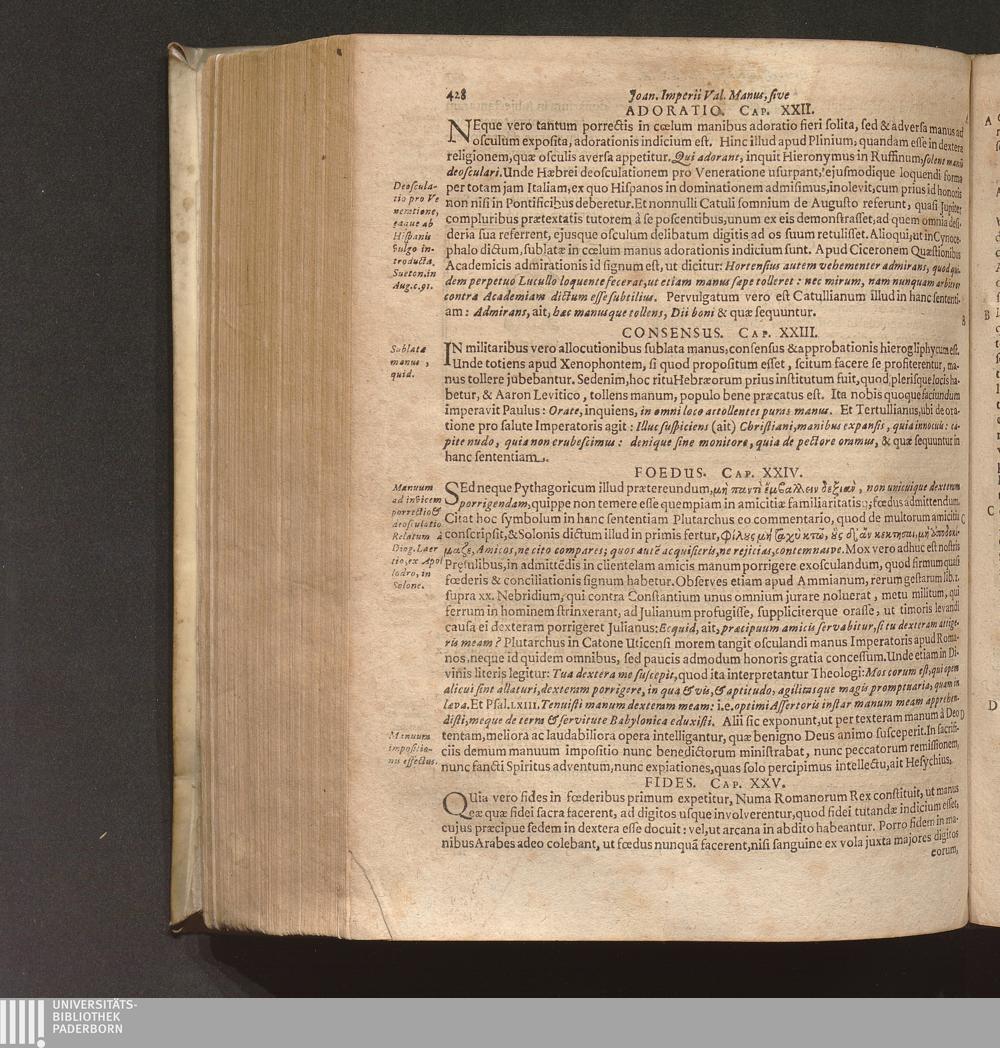 428
Joan. Imperii Val. Manus, sive
ADORATIO. CAP. XXII.
NEque vero tantum porrectis in cœlum manibus adoratio fieri solita, sed & adversa manus ad
osculum exposita, adorationis indicium est. Hinc illud apud Plinium, quandam esse in dextera
religionem, quæ osculis aversa appetitur. Qui adorant, inquit Hieronymus in Ruffinum, solent manũ
deosculari. Unde Hæbrei deosculationem pro Veneratione usurpant, ejusmodique loquendi forma
per totam jam Italiam, ex quo Hispanos in dominationem admisimus, inolevit, cum prius id honoris
non nisi in Pontificibus deberetur. Et nonnulli Catuli somnium de Augusto referunt, quasi Jupiter
compluribus prætextatis tutorem à se poscentibus, unum ex eis demonstrasset, ad quem omnia desi-
deria sua referrent, ejusque osculum delibatum digitis ad os suum retulisset. Alioqui, ut in Cynoce-
phalo dictum, sublatæ in cœlum manus adorationis indicium sunt. Apud Ciceronem Quæstionibus
Academicis admirationis id signum est, ut dicitur: Hortensius autem vehementer admirans, quod qui-
dem perpetuò Lucullo loquente fecerat, ut etiam manus sæpe tolleret: nec mirum, nam nunquam arbitror
contra Academiam dictum esse subtilius. Pervulgatum vero est Catullianum illud in hanc sententi-
am: Admirans, ait, hæc manusque tollens, Dii boni & quæ sequuntur.
Deoscula-
tio pro Ve
neratione,
eaque ab
Hispanis
vulgo in-
troducta.
Sueton. in
Aug. c. 91.
B
CONSENSUS. CAP. XXIII.
IN militaribus vero allocutionibus sublata manus, consensus & approbationis hierogliphycum est.
Unde totiens apud Xenophontem, si quod propositum esset, scitum facere se profiterentur, ma-
nus tollere jubebantur. Sed enim, hoc ritu Hebræorum prius institutum fuit, quod plerisque locis ha-
betur, & Aaron Levitico, tollens manum, populo bene præcatus est. Ita nobis quoque faciundum
imperavit Paulus: Orate, inquiens, in omni loco attollentes puras manus. Et Tertullianus, ubi de ora-
tione pro salute Imperatoris agit: Illuc suspiciens (ait) Christiani, manibus expansis, quia innocuis: ca-
pite nudo, quia non erubescimus: denique sine monitore, quia de pectore oramus, & quæ sequuntur in
hanc sententiam.
Sublata
manus,
quid.
FOEDUS. CAP. XXIV.
SEd neque Pythagoricum illud prætereundum, μὴ παντὶ ἐμβάλλειν δεξιὰν, non unicuique dexteram
porrigendam, quippe non temere esse quempiam in amicitiæ familiaritatisq; fœdus admittendum.
Citat hoc symbolum in hanc sententiam Plutarchus eo commentario, quod de multorum amicitia C
conscripsit, & Solonis dictum illud in primis fertur, φίλους μὴ ταχὺ κτῶ, οὓς δ᾽ ἂν κεκτησαι, μὴ ἀποδοκί-
μαζε, Amicos, ne cito compares; quos autẽ acquisieris, ne rejicias, contemnasve. Mox vero adhuc est nostris
Pręsulibus, in admittẽdis in clientelam amicis manum porrigere exosculandum, quod firmum quasi
fœderis & conciliationis signum habetur. Observes etiam apud Ammianum, rerum gestarum lib. 1.
supra xx. Nebridium, qui contra Constantium unus omnium jurare noluerat, metu militum, qui
ferrum in hominem strinxerant, ad Julianum profugisse, suppliciterque orasse, ut timoris levandi
causa ei dexteram porrigeret Julianus: Ecquid, ait, præcipuum amicis servabitur, si tu dexteram attige-
ris meam? Plutarchus in Catone Uticensi morem tangit osculandi manus Imperatoris apud Roma-
nos, neque id quidem omnibus, sed paucis admodum honoris gratia concessum. Unde etiam in Di-
vinis literis legitur: Tua dextera me suscepit, quod ita interpretantur Theologi: Mos eorum est, qui opem
alicui sint allaturi, dexteram porrigere, in qua & vis, & aptitudo, agilitasque magis promptuaria, quam in
læva. Et Psal. LXIII. Tenuisti manum dexteram meam: i.e. optimi Assertoris instar manum meam apprehen-
disti, meque de terra & servitute Babylonica eduxisti. Alii sic exponunt, ut per texteram manum à Deo D
tentam, meliora ac laudabiliora opera intelligantur, quæ benigno Deus animo susceperit. In sacrifi-
ciis demum manuum impositio nunc benedictorum ministrabat, nunc peccatorum remissionem,
nunc sancti Spiritus adventum, nunc expiationes, quas solo percipimus intellectu, ait Hesychius.
Manuum
ad invicem
porrectio &
deosculatio
Relatum à
Diog. Laer
tio, ex Apol
lodro, in
Solone.
Manuum
impositio-
nis effectus.
FIDES. CAP. XXV.
QUia vero fides in fœderibus primum expetitur, Numa Romanorum Rex constituit, ut manus
eæ quæ fidei sacra facerent, ad digitos usque involverentur, quod fidei tutandæ indicium esset,
cujus præcipue sedem in dextera esse docuit: vel, ut arcana in abdito habeantur. Porro fidem in ma-
nibus Arabes adeo colebant, ut fœdus nunquã facerent, nisi sanguine ex vola juxta majores digitos
eorum,
A
B
C
D
UNIVERSITÄTS-
BIBLIOTHEK
PADERBORN